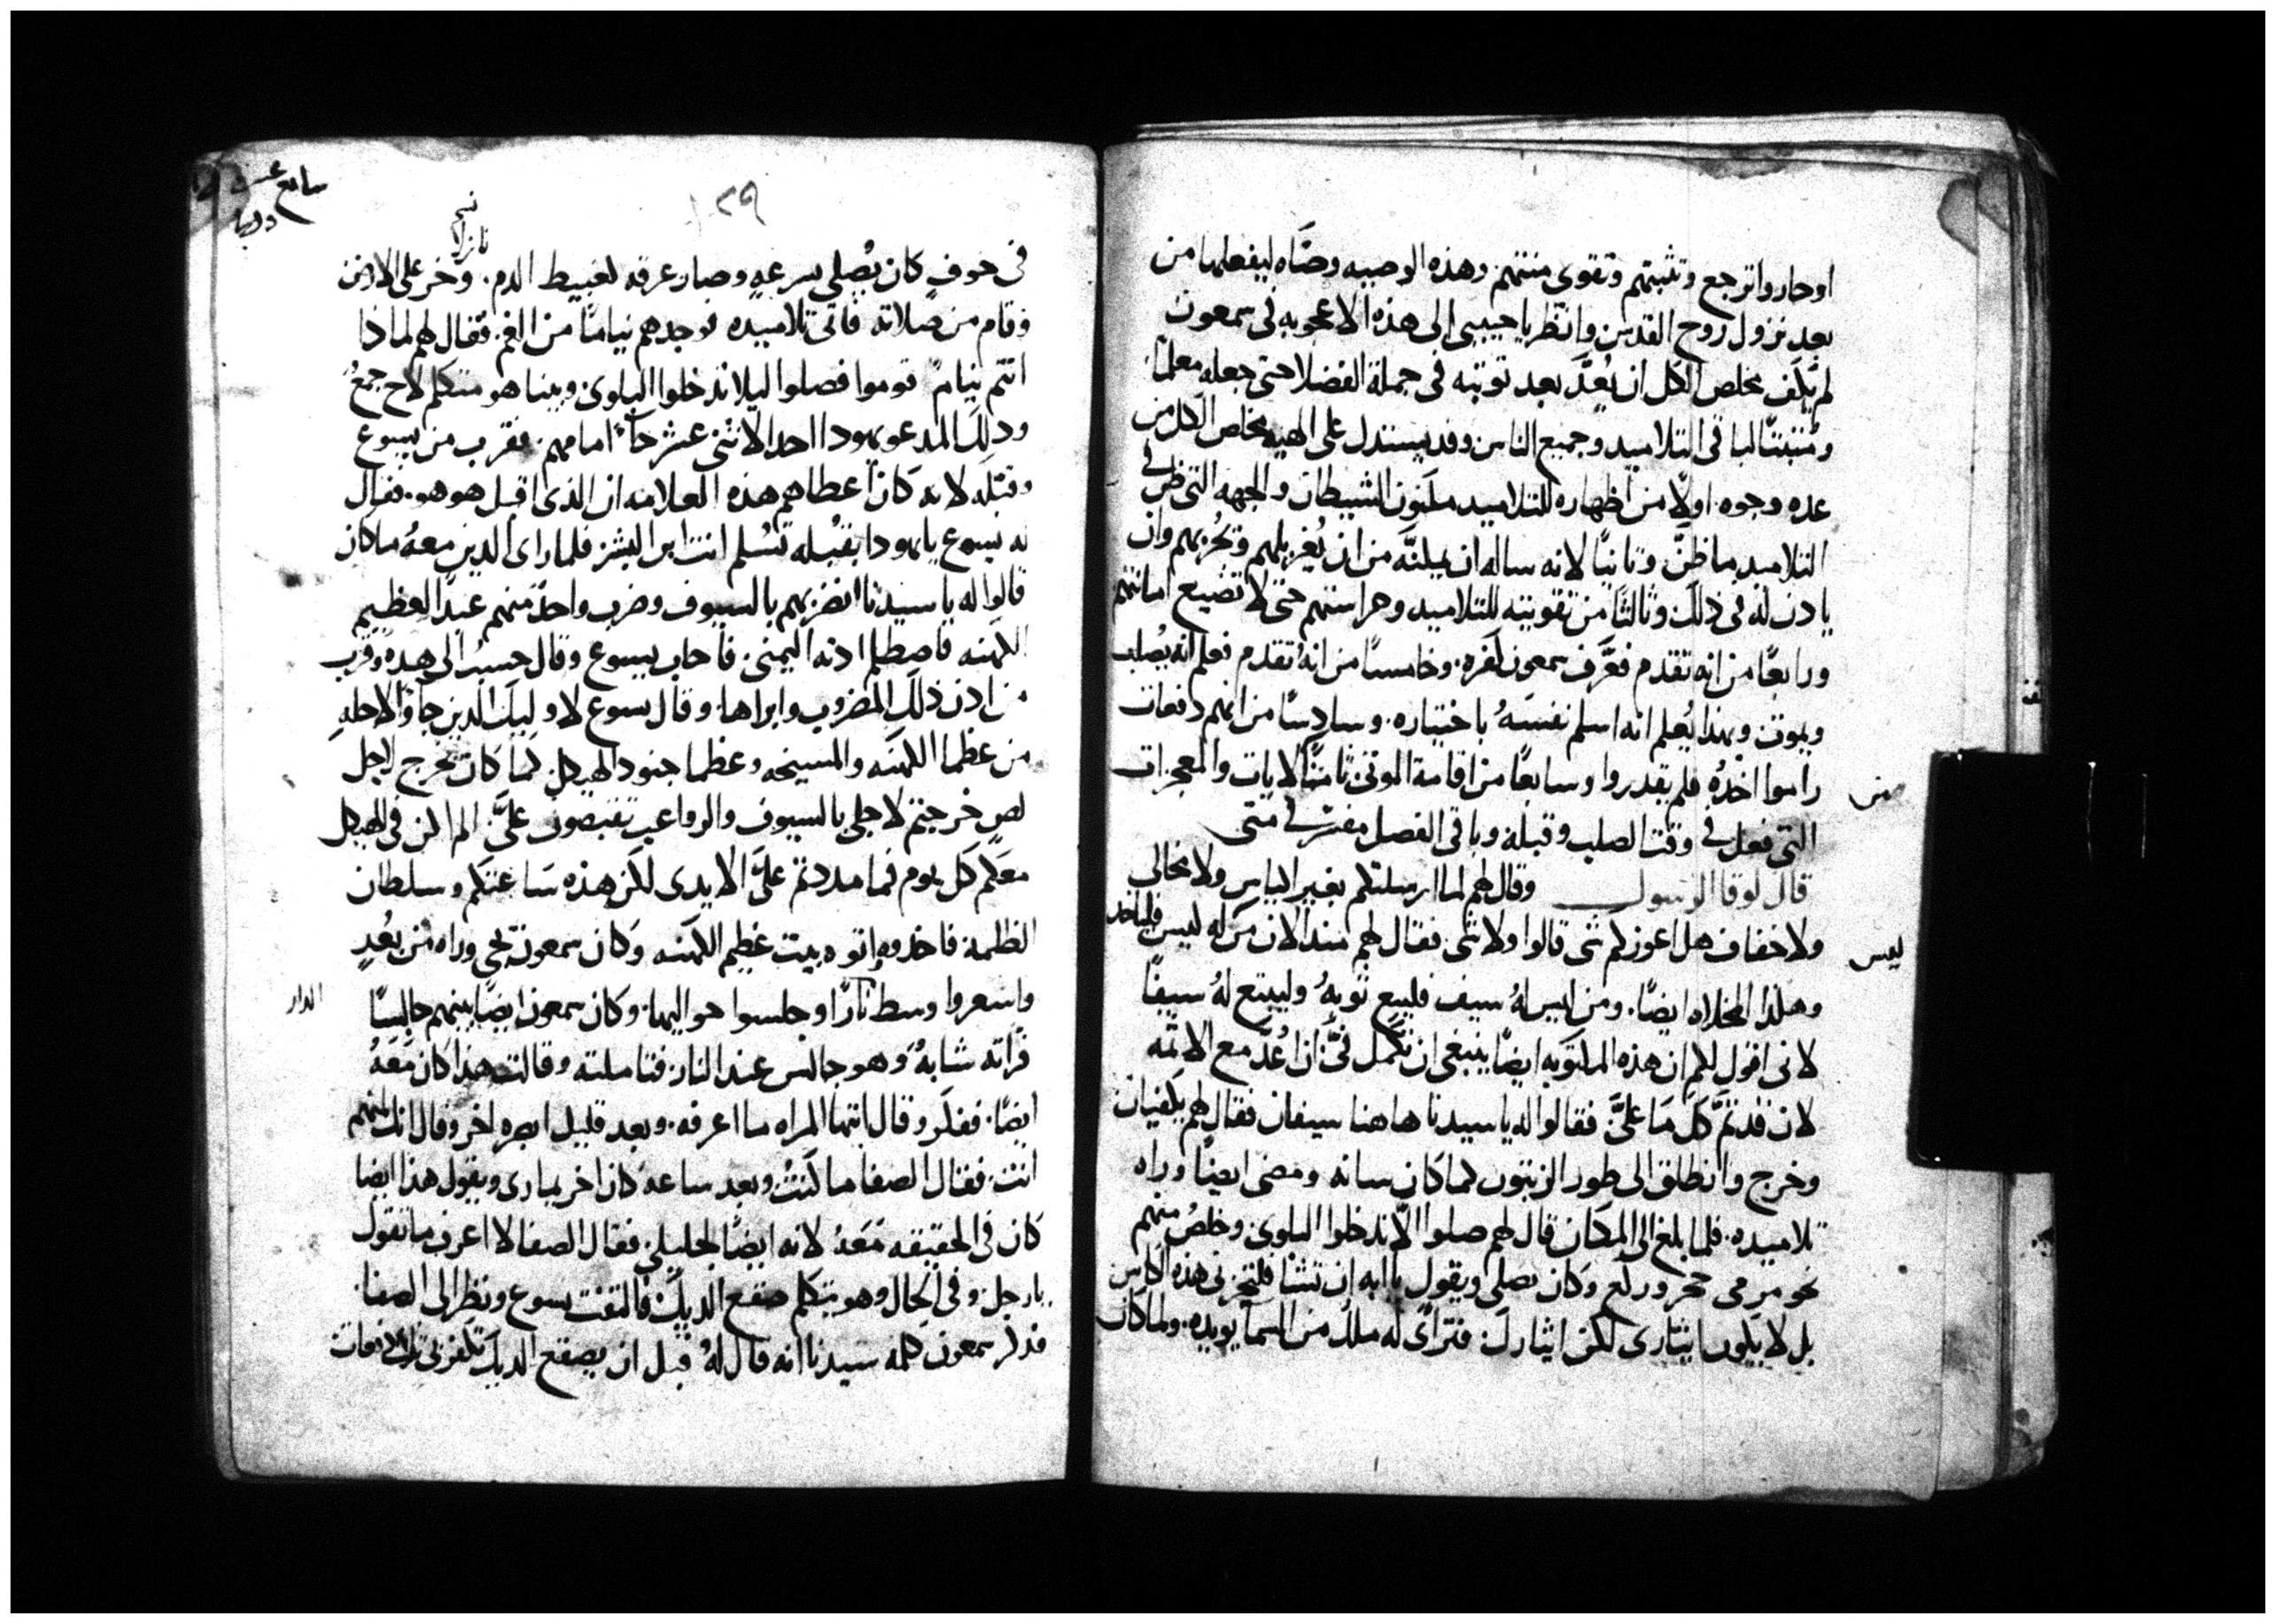 او حاروا ترجع وتثبتهم وتقوى منتهم وهذه الوصيه وصّاه ليفعلها من
بعد نزول روح القدس وانظر يا حبيبى الى هذه الاعجوبه فى سمعون
لم يكف مخلص الكل ان يُعدَّ بعد توبته فى جملة الفضلا حتى جعله معلمًا
ومثبتًا لباقى التلاميد وجميع الناس وقد يستدل على الهيه مخلص الكل من
عده وجوه. اولًا من اظهاره للتلاميد مكنون الشيطان والجهه التى ظن فى
التلاميد ما ظنَّ وثانيًا لانه ساله ان يمكنَّه من ان يُغربلهم ويُجربهم وان
يادن له فى ذلك وثالثًا من تقويته للتلاميد وحراستهم حتى لا تضيع امانتهم
ورابعًا من انه تقدم فعرَّف سمعون كفره. وخامسًا من انهُ تقدم فعلم انه يُصلب
ويموت وبهذا يُعلم انه اسلم نفسهُ باختياره. وسادسًا من انهم دفعات
راموا اخدهُ فلم يقدروا وسابعًا من اقامة الموتى ثامنًا الايات والمعجزات
من
التى فعل فى وقت الصلب وقبله وباقى الفصل مفسّر فى متى
قال لوقا الرسول وقال لهم لما ارسلتكم بغير اكياس ولا مخالى
ولا خفاف هل اعوزكم شى قالوا ولا شى فقال لهم مند الان من له كيس فلياخد
ليس
وهكذا المخلاه ايضًا. ومن ليس لهُ سيف فليبع ثوبهُ وليبتع لهُ سيفًا
لانى اقول لكم ان هذه المكتوبه ايضًا ينبغى ان تكمل فىَّ ان اُعدَّ مع الاثمه
لان قد تمَّ كل ما علىَّ فقالوا له يا سيدنا هاهنا سيفان فقال لهم يكفيان
وخرج وانطلق الى طور الزيتون كما كان سانه ومضى ايضًا وراه
تلاميده. فلما بلغ الى المكان قال لهم صلوا الّا تدخلوا البلوى وخلصُ منهم
نحو مرمى حجر وركع وكان يصلى ويقول يا ابه ان تشا فلتجزنى هذه الكاس
بل لا يكون ايثارى لكن ايثارك فترآى له ملك من السمآ يويده. ولما كان
سابع عشر
١٢٩
نازلا
فى خوفٍ كان يُصلى بسرعهٍ وصار عرقه كغبيط الدم. وخر على الارض
وقام من صلاته فاتى تلاميده فوجدهم نيامًا من الغم. فقال لهم لما ذا
انتم نيامٌ قوموا فصلوا ليلا تدخلوا البلوى وبينا هو متكلم لاح جمعُ
ودلك المدعو يهودا احد الاثنى عشر جآ امامهم. فقرب من يسوع
وقبّله لانه كان اعطاهم هذه العلامه ان الذى اقبل هو هو. فقال
له يسوع يا يهودا بقبله تسُلم انت ابن البشر فلما راى الدين معهُ ما كان
قالوا له يا سيدنا انضربهم بالسيوف وضرب واحدٌ منهم عبدًا لعظيم
الكهنه فاصطلم ادنه اليمنى. فاجاب يسوع وقال حسبُ الى هده وقرب
من ادن ذلك المضروب وابراها. وقال يسوع لاوليك الدين جآوٌ لاجله
من عظما الكهنه والمسيخه وعظما جنود الهيكل كما كان يخرج لاجل
لصٍ خرجتم لاجلى بالسيوف والرواعب تقبضون علىَّ. الم اكن فى الهيكل
معكم كل يوم فما مددتم علىَّ الايدى لكن هذه ساعتكم وسلطان
الظلمه فاخدوه واتوه بيت عظيم الكهنه وكان سمعون يجى وراه من بُعدٍ
واسعروا وسط نارًا وجلسوا حواليها. وكان سمعون ايضًا بينهم جالسًا
الدار
فراته شابهٌ وهو جالس عند النار. فتاملته وقالت هذا كان معهُ
ايضًا. فكفر وقال ايتها المراه ما اعرفه. وبعد قليل ابصره اخر وقال انك منهم
انت. فقال الصفا ما كنتُ وبعد ساعه كان اخر يمارى ويقول هذا ايضا
كان فى الحقيقه معهُ لانه ايضًا لجليلي. فقال الصفا لا اعرف ما تقول
يا رجل. وفى الحال وهو يتكلم صقع الديك. فالتفت يسوع ونظر الى الصفا.
فدكر سمعون كلمه سيدنا انه قال لهُ قبل ان يصقع الديك تكفر بى ثلث دفعات